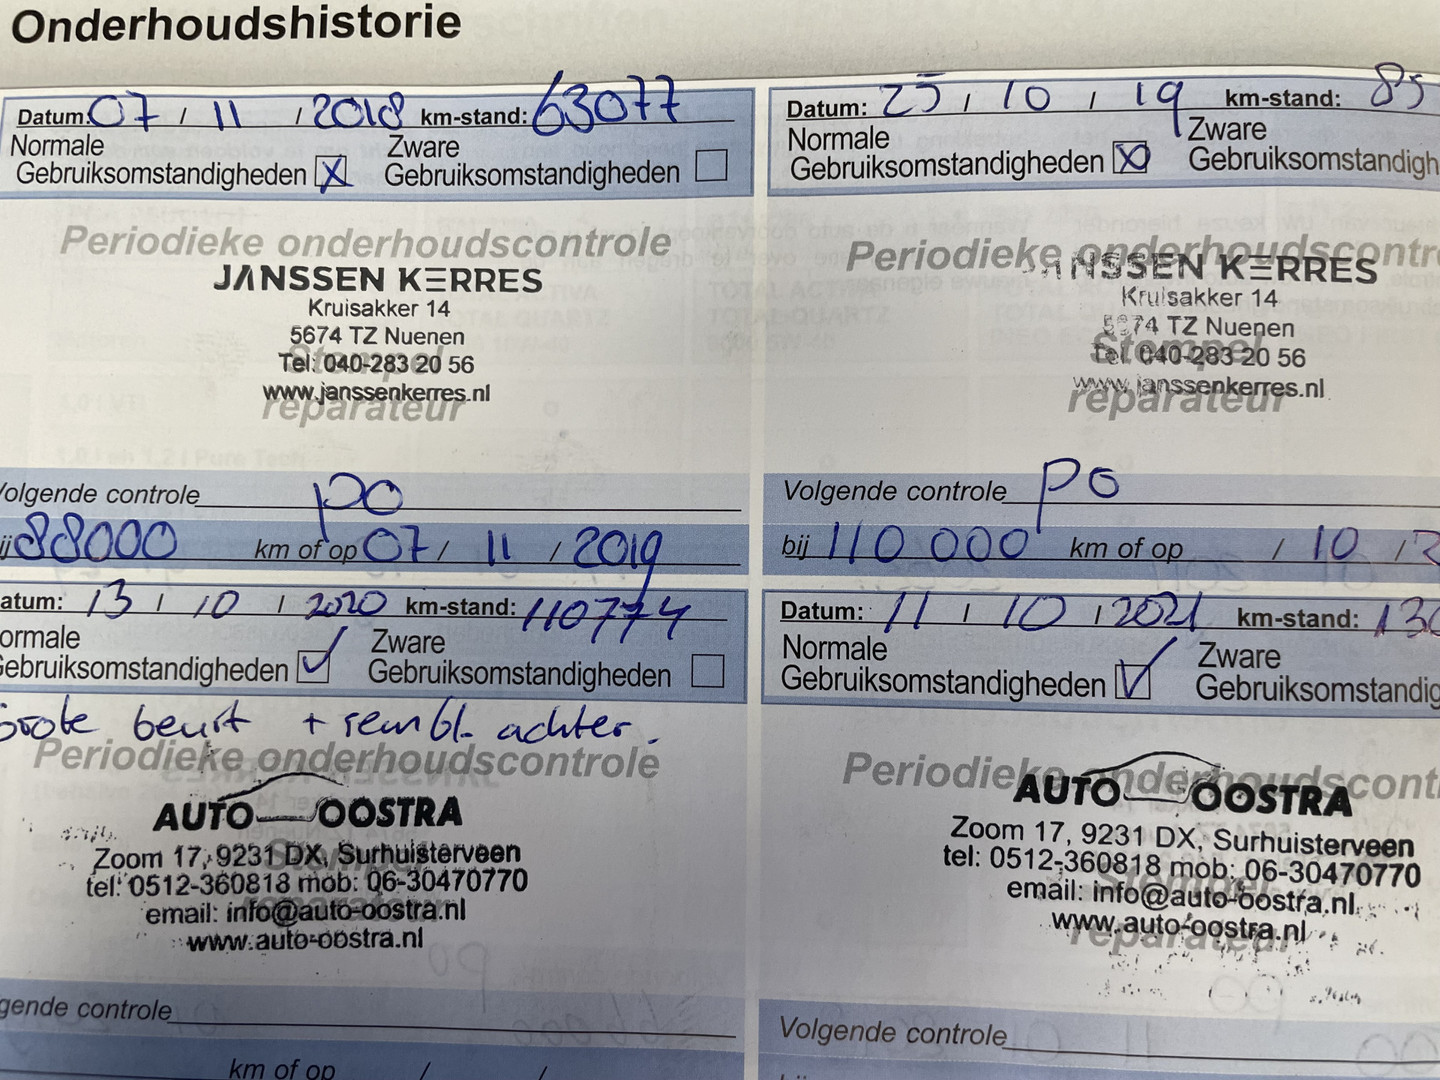 Onderhoudshistorie
Datum: 07 / 11 / 2018 km-stand: 63077
Normale Zware
Gebruiksomstandigheden X Gebruiksomstandigheden
Periodieke onderhoudscontrole
JANSSEN KERRES
Kruisakker 14
5674 TZ Nuenen
Stempel
Tel: 040-283 20 56
www.janssenkerres.nl
reparateur
Volgende controle PO
ij 88000 km of op 07 / 11 / 2019
Datum: 25 / 10 / 19 km-stand: 85
Normale Zware
Gebruiksomstandigheden X Gebruiksomstandigh
Periodieke onderhoudscontr
JANSSEN KERRES
Kruisakker 14
5674 TZ Nuenen
Stempel
Tel: 040-283 20 56
www.janssenkerres.nl
reparateur
Volgende controle PO
bij 110 000 km of op / 10 / 2
atum: 13 / 10 / 2020 km-stand: 110774
ormale Zware
Gebruiksomstandigheden Gebruiksomstandigheden
Grote beurt + rembl. achter.
Periodieke onderhoudscontrole
AUTO OOSTRA
Zoom 17, 9231 DX, Surhuisterveen
Stempel
tel: 0512-360818 mob: 06-30470770
reparateur
email: info@auto-oostra.nl
www.auto-oostra.nl
gende controle
km of op / /
Datum: 11 / 10 / 2021 km-stand: 130
Normale Zware
Gebruiksomstandigheden Gebruiksomstandig
Periodieke onderhoudscont
AUTO OOSTRA
Zoom 17, 9231 DX, Surhuisterveen
tel: 0512-360818 mob: 06-30470770
Stempel
email: info@auto-oostra.nl
www.auto-oostra.nl
reparateur
Volgende controle